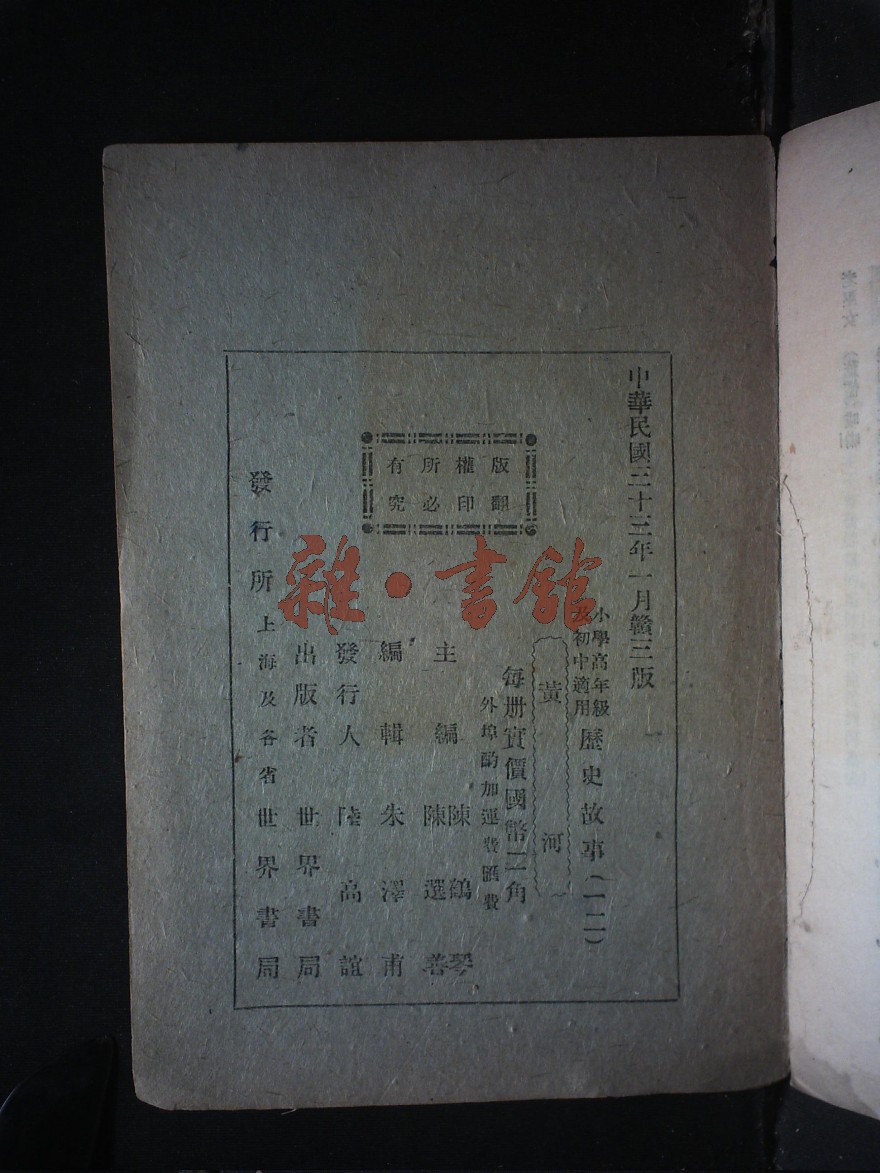 中華民國三十三年一月贛三版
小學高年級
及初中適用
歷史故事(一二)
黃河
每册實價國幣二角
外埠酌加運費匯費
版權所有
翻印必究
主編 陳鶴琴
陳選善
編輯 朱澤甫
發行人 陸高誼
出版者 世界書局
發行所 上海及各省世界書局
雜·書館